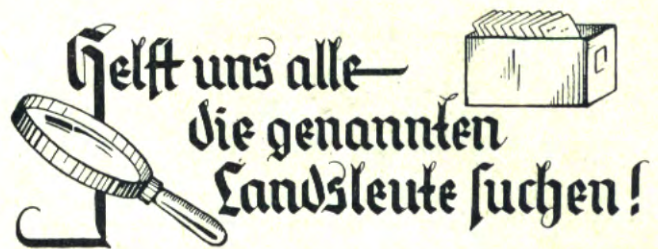 Helft uns alle
die genannten
Landsleute suchen!